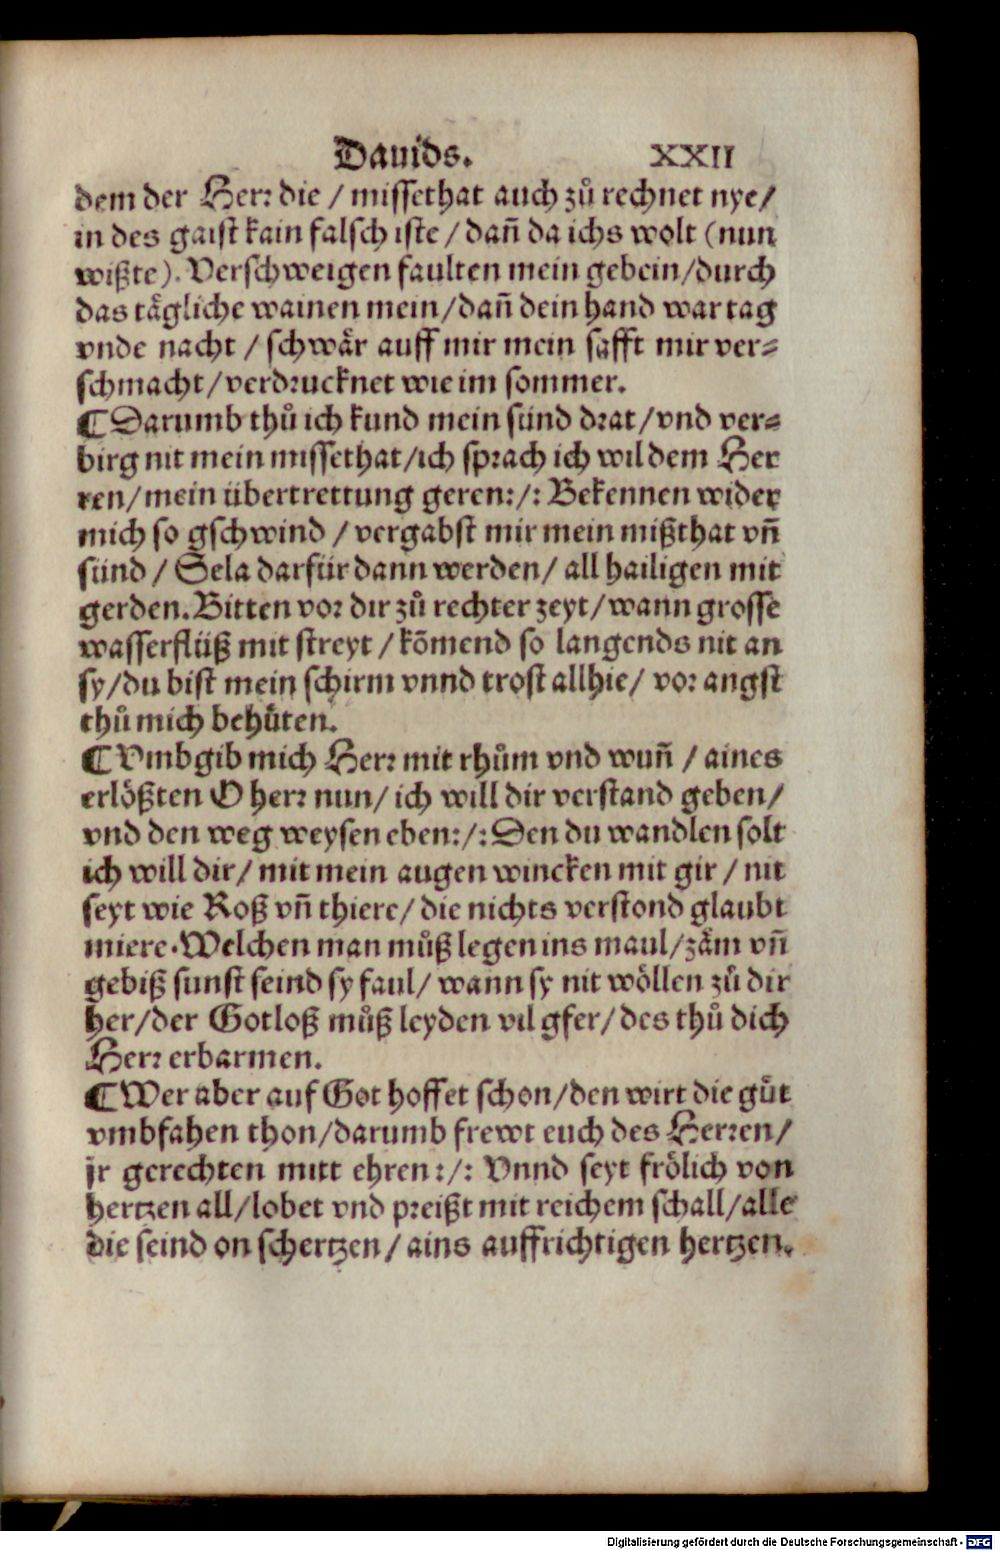 Dauids. XXII
dem der Herr die / missethat auch zů rechnet nye /
in des gaist kain falsch iste / dañ da ichs wolt (nun
wißte). Verschweigen faulten mein gebein / durch
das tägliche wainen mein / dañ dein hand war tag
vnde nacht / schwår auff mir mein safft mir ver⸗
schmacht / verdrucknet wie im sommer.
¶ Darumb thů ich kund mein sünd drat / vnd ver⸗
birg nit mein missethat / ich sprach ich wil dem Her
ren / mein übertrettung geren :/: Bekennen wider
mich so gschwind / vergabst mir mein mißthat vñ
sünd / Sela darfür dann werden / all hailigen mit
gerden. Bitten vor dir zů rechter zeyt / wann grosse
wasserflüß mit streyt / kõmend so langends nit an
sy / du bist mein schirm vnnd trost allhie / vor angst
thů mich behůten.
¶ Vmbgib mich Herr mit rhům vnd wuñ / aines
erlößten O herr nun / ich will dir verstand geben /
vnd den weg weysen eben :/: Den du wandlen solt
ich will dir / mit mein augen wincken mit gir / nit
seyt wie Roß vñ thiere / die nichts verstond glaubt
miere. Welchen man můß legen ins maul / zåm vñ
gebiß sunst seind sy faul / wann sy nit wöllen zů dir
her / der Gotloß můß leyden vil gfer / des thů dich
Herr erbarmen.
¶ Wer aber auf Got hoffet schon / den wirt die gůt
vmbfahen thon / darumb frewt euch des Herren /
jr gerechten mitt ehren :/: Vnnd seyt frölich von
hertzen all / lobet vnd preißt mit reichem schall / alle
die seind on schertzen / ains auffrichtigen hertzen.
Digitalisierung gefördert durch die Deutsche Forschungsgemeinschaft - DFG